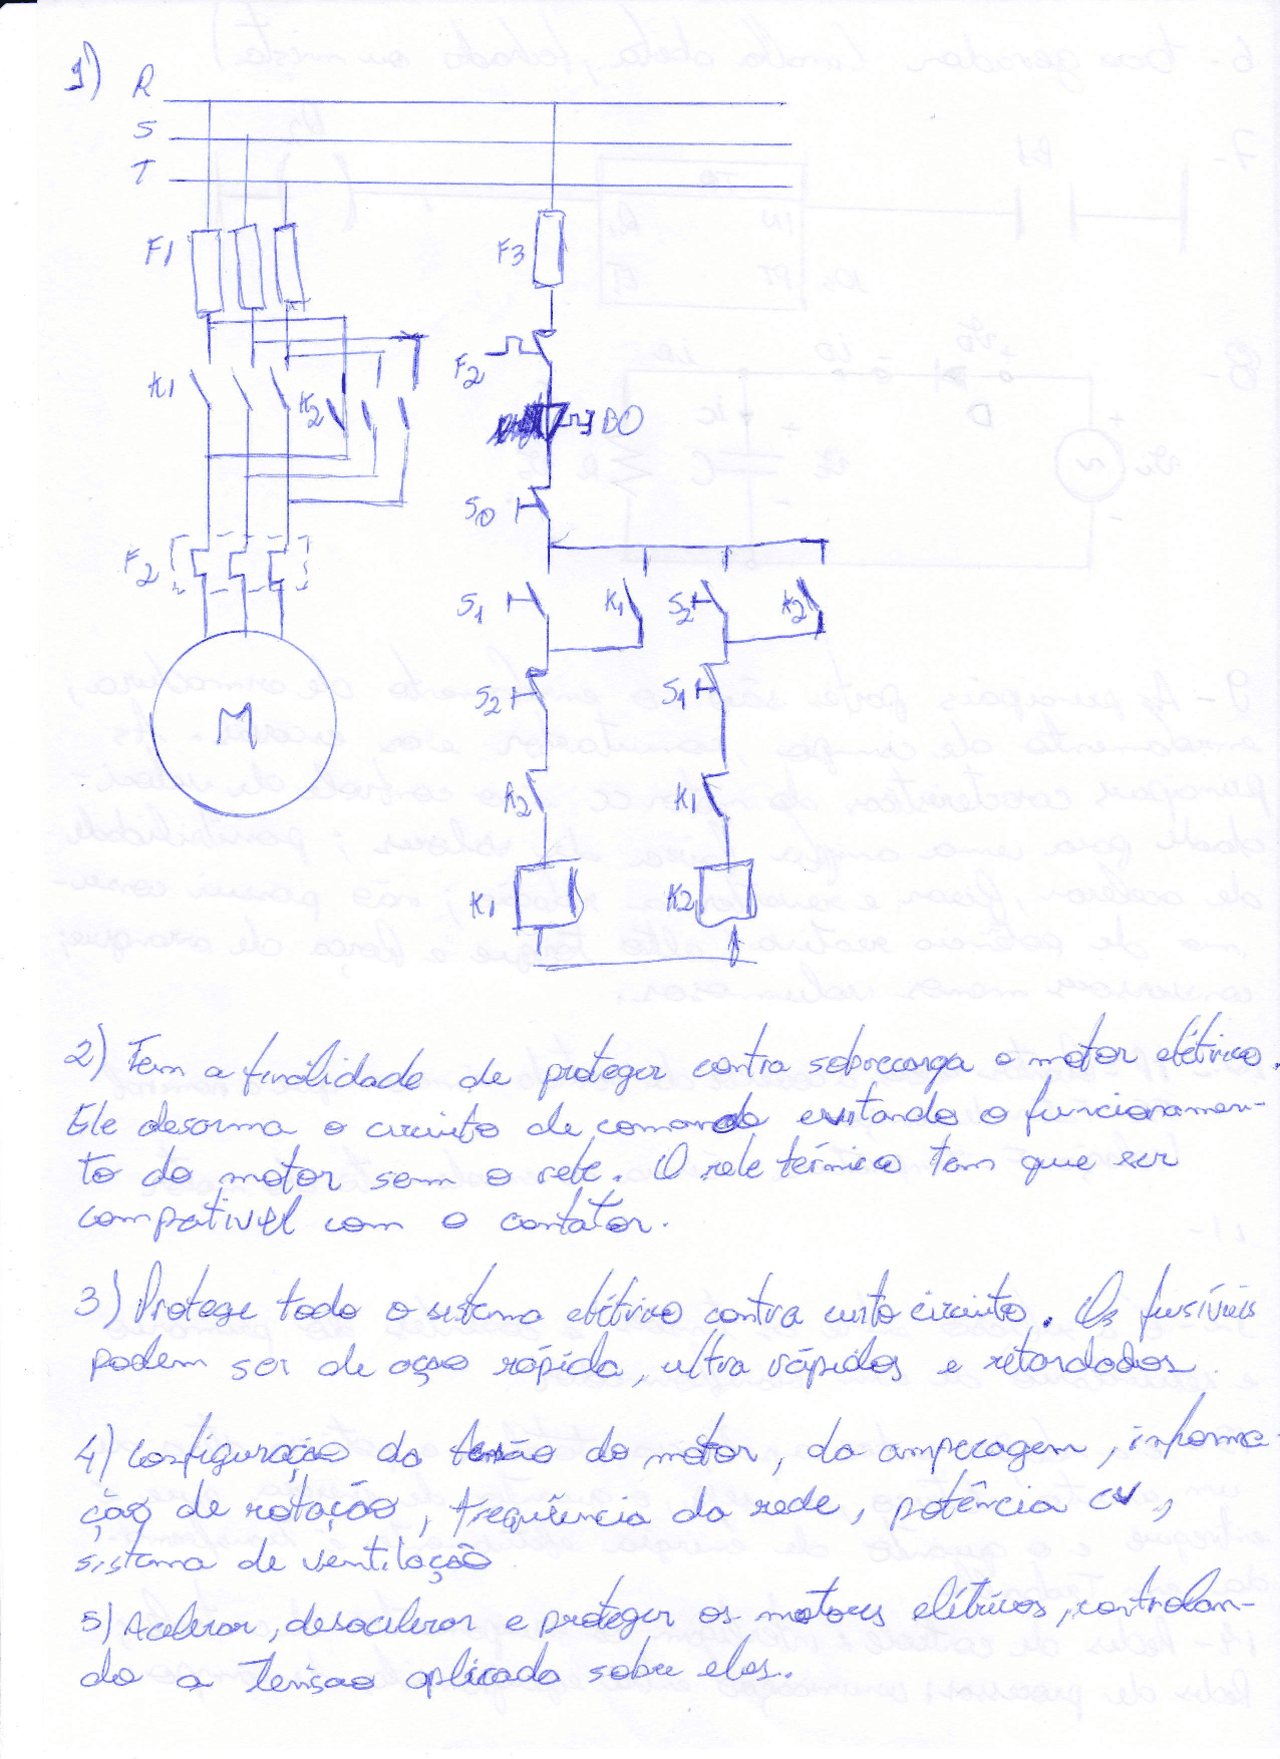 1)
R
S
T
F1
F3
F2
K1
K2
BO
S0
F2
S1
K1
S2
K2
S2
S1
M
K2
K1
K1
K2
2) Tem a finalidade de proteger contra sobrecarga o motor elétrico.
Ele desarma o circuito de comando evitando o funcionamen-
to do motor sem o rele. O rele térmico tem que ser
compativel com o contator.
3) Protege todo o sistema elétrico contra curto circuito. Os fusíveis
podem ser de ação rápida, ultra rápidos e retardados.
4) Configuração da tensão do motor, da amperagem, informa-
ção de rotação, frequência da rede, potência cv,
sistema de ventilação
5) Acelerar, desacelerar e proteger os motores elétricos, controlan-
do a tensão aplicada sobre eles.